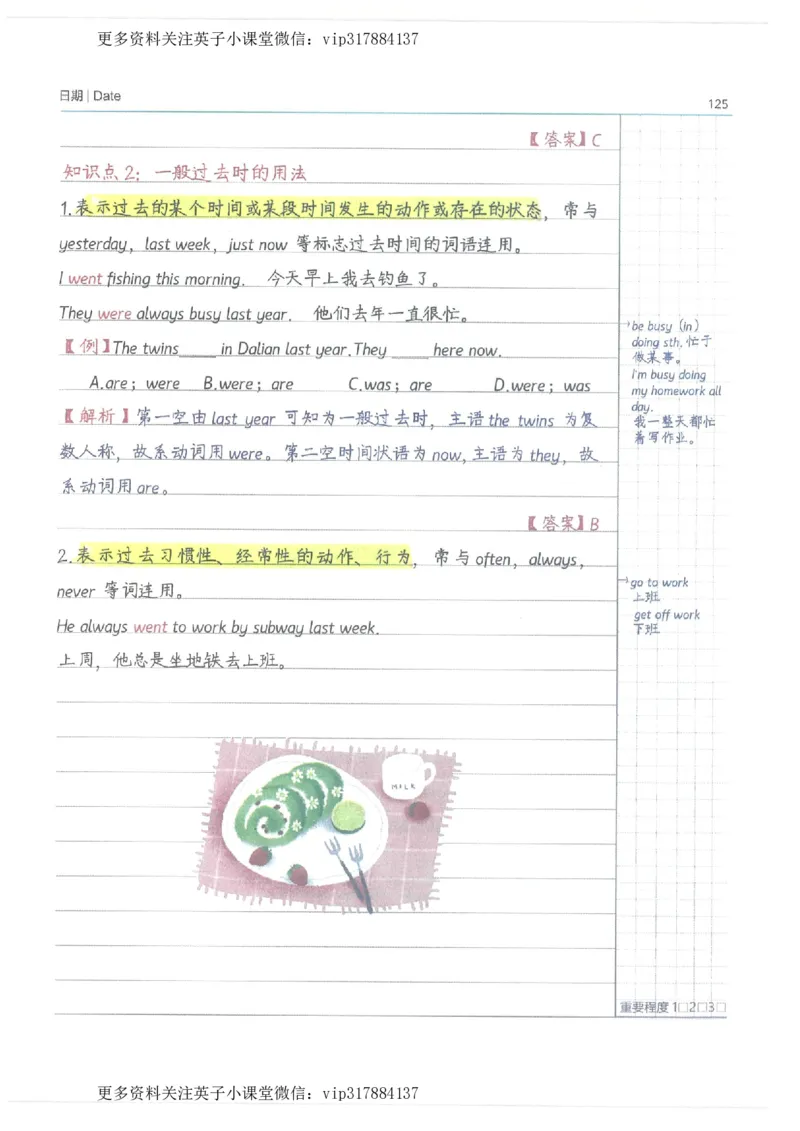 更多资料关注英子小课堂微信：vip317884137
日期 | Date
125
【答案】C
知识点2：一般过去时的用法
1.表示过去的某个时间或某段时间发生的动作或存在的状态，常与
yesterday，last week，just now 等标志过去时间的词语连用。
I went fishing this morning. 今天早上我去钓鱼了。
They were always busy last year. 他们去年一直很忙。
【例】The twins____ in Dalian last year.They ____ here now.
A.are；were B.were；are C.was；are D.were；was
【解析】第一空由 last year 可知为一般过去时，主语 the twins 为复
数人称，故系动词用 were。第二空时间状语为 now，主语为 they，故
系动词用 are。
【答案】B
2.表示过去习惯性、经常性的动作、行为，常与 often，always，
never 等词连用。
He always went to work by subway last week.
上周，他总是坐地铁去上班。
→be busy（in）
doing sth.忙于
做某事。
I'm busy doing
my homework all
day.
我一整天都忙
着写作业。
→go to work
上班
get off work
下班
MILK
重要程度 1□2□3□
更多资料关注英子小课堂微信：vip317884137